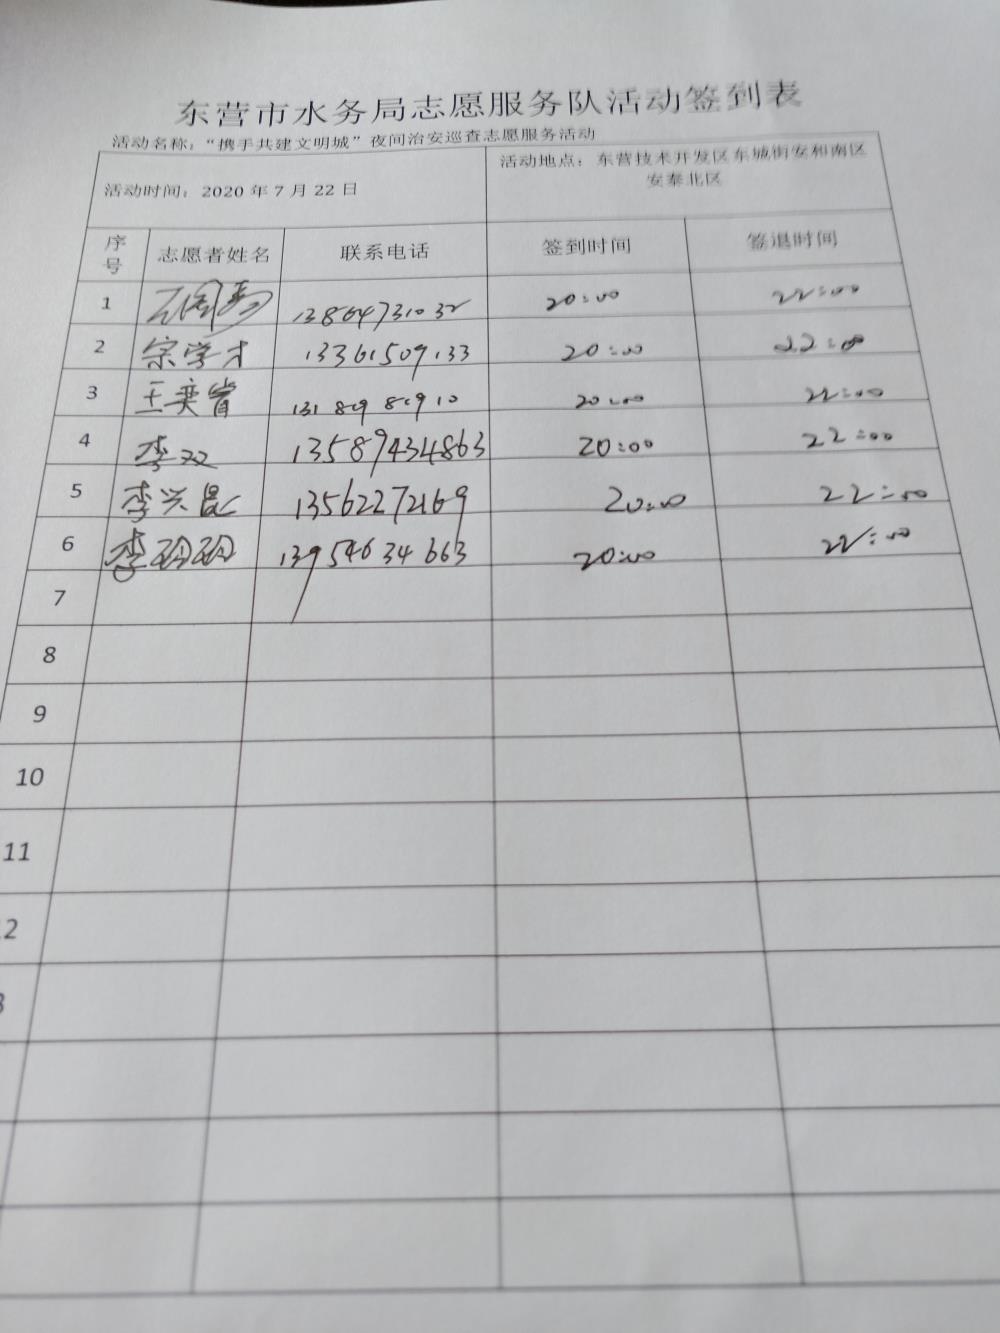 东营市水务局志愿服务队活动签到表
活动名称：“携手共建文明城”夜间治安巡查志愿服务活动
活动时间：2020 年 7 月 22 日
活动地点：东营技术开发区东城街安和南区
安泰北区
序号 志愿者姓名 联系电话 签到时间 签退时间
1 13864731032 20:00 22:00
2 宗学才 13361509133 20:00 22:00
3 王奕省 13189980910 20:00 22:00
4 李双 13589434863 20:00 22:00
5 李兴昆 13562272169 20:00 22:00
6 李玢玢 13954634663 20:00 22:00
7
8
9
10
11
2
3